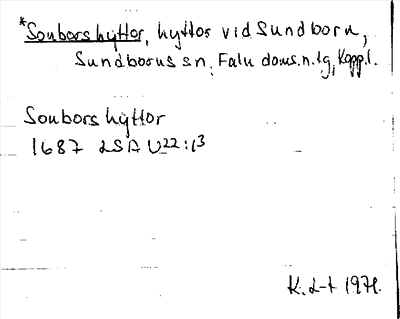 *Sonborshyttor, hyttor vid Sundborn,
Sundborns sn, Falu doms.n.lg, Kopp.l.
Sonborshyttor
1687 LSA U22:13
K. L-t 1971.